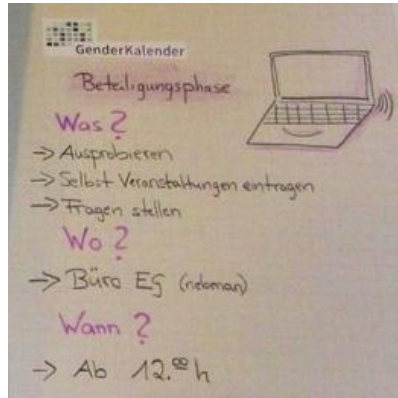 GenderKalender
Beteiligungsphase
Was?
→ Ausprobieren
→ Selbst Veranstaltungen eintragen
→ Fragen stellen
Wo?
→ Büro EG (nebenan)
Wann?
→ Ab 12.00 h